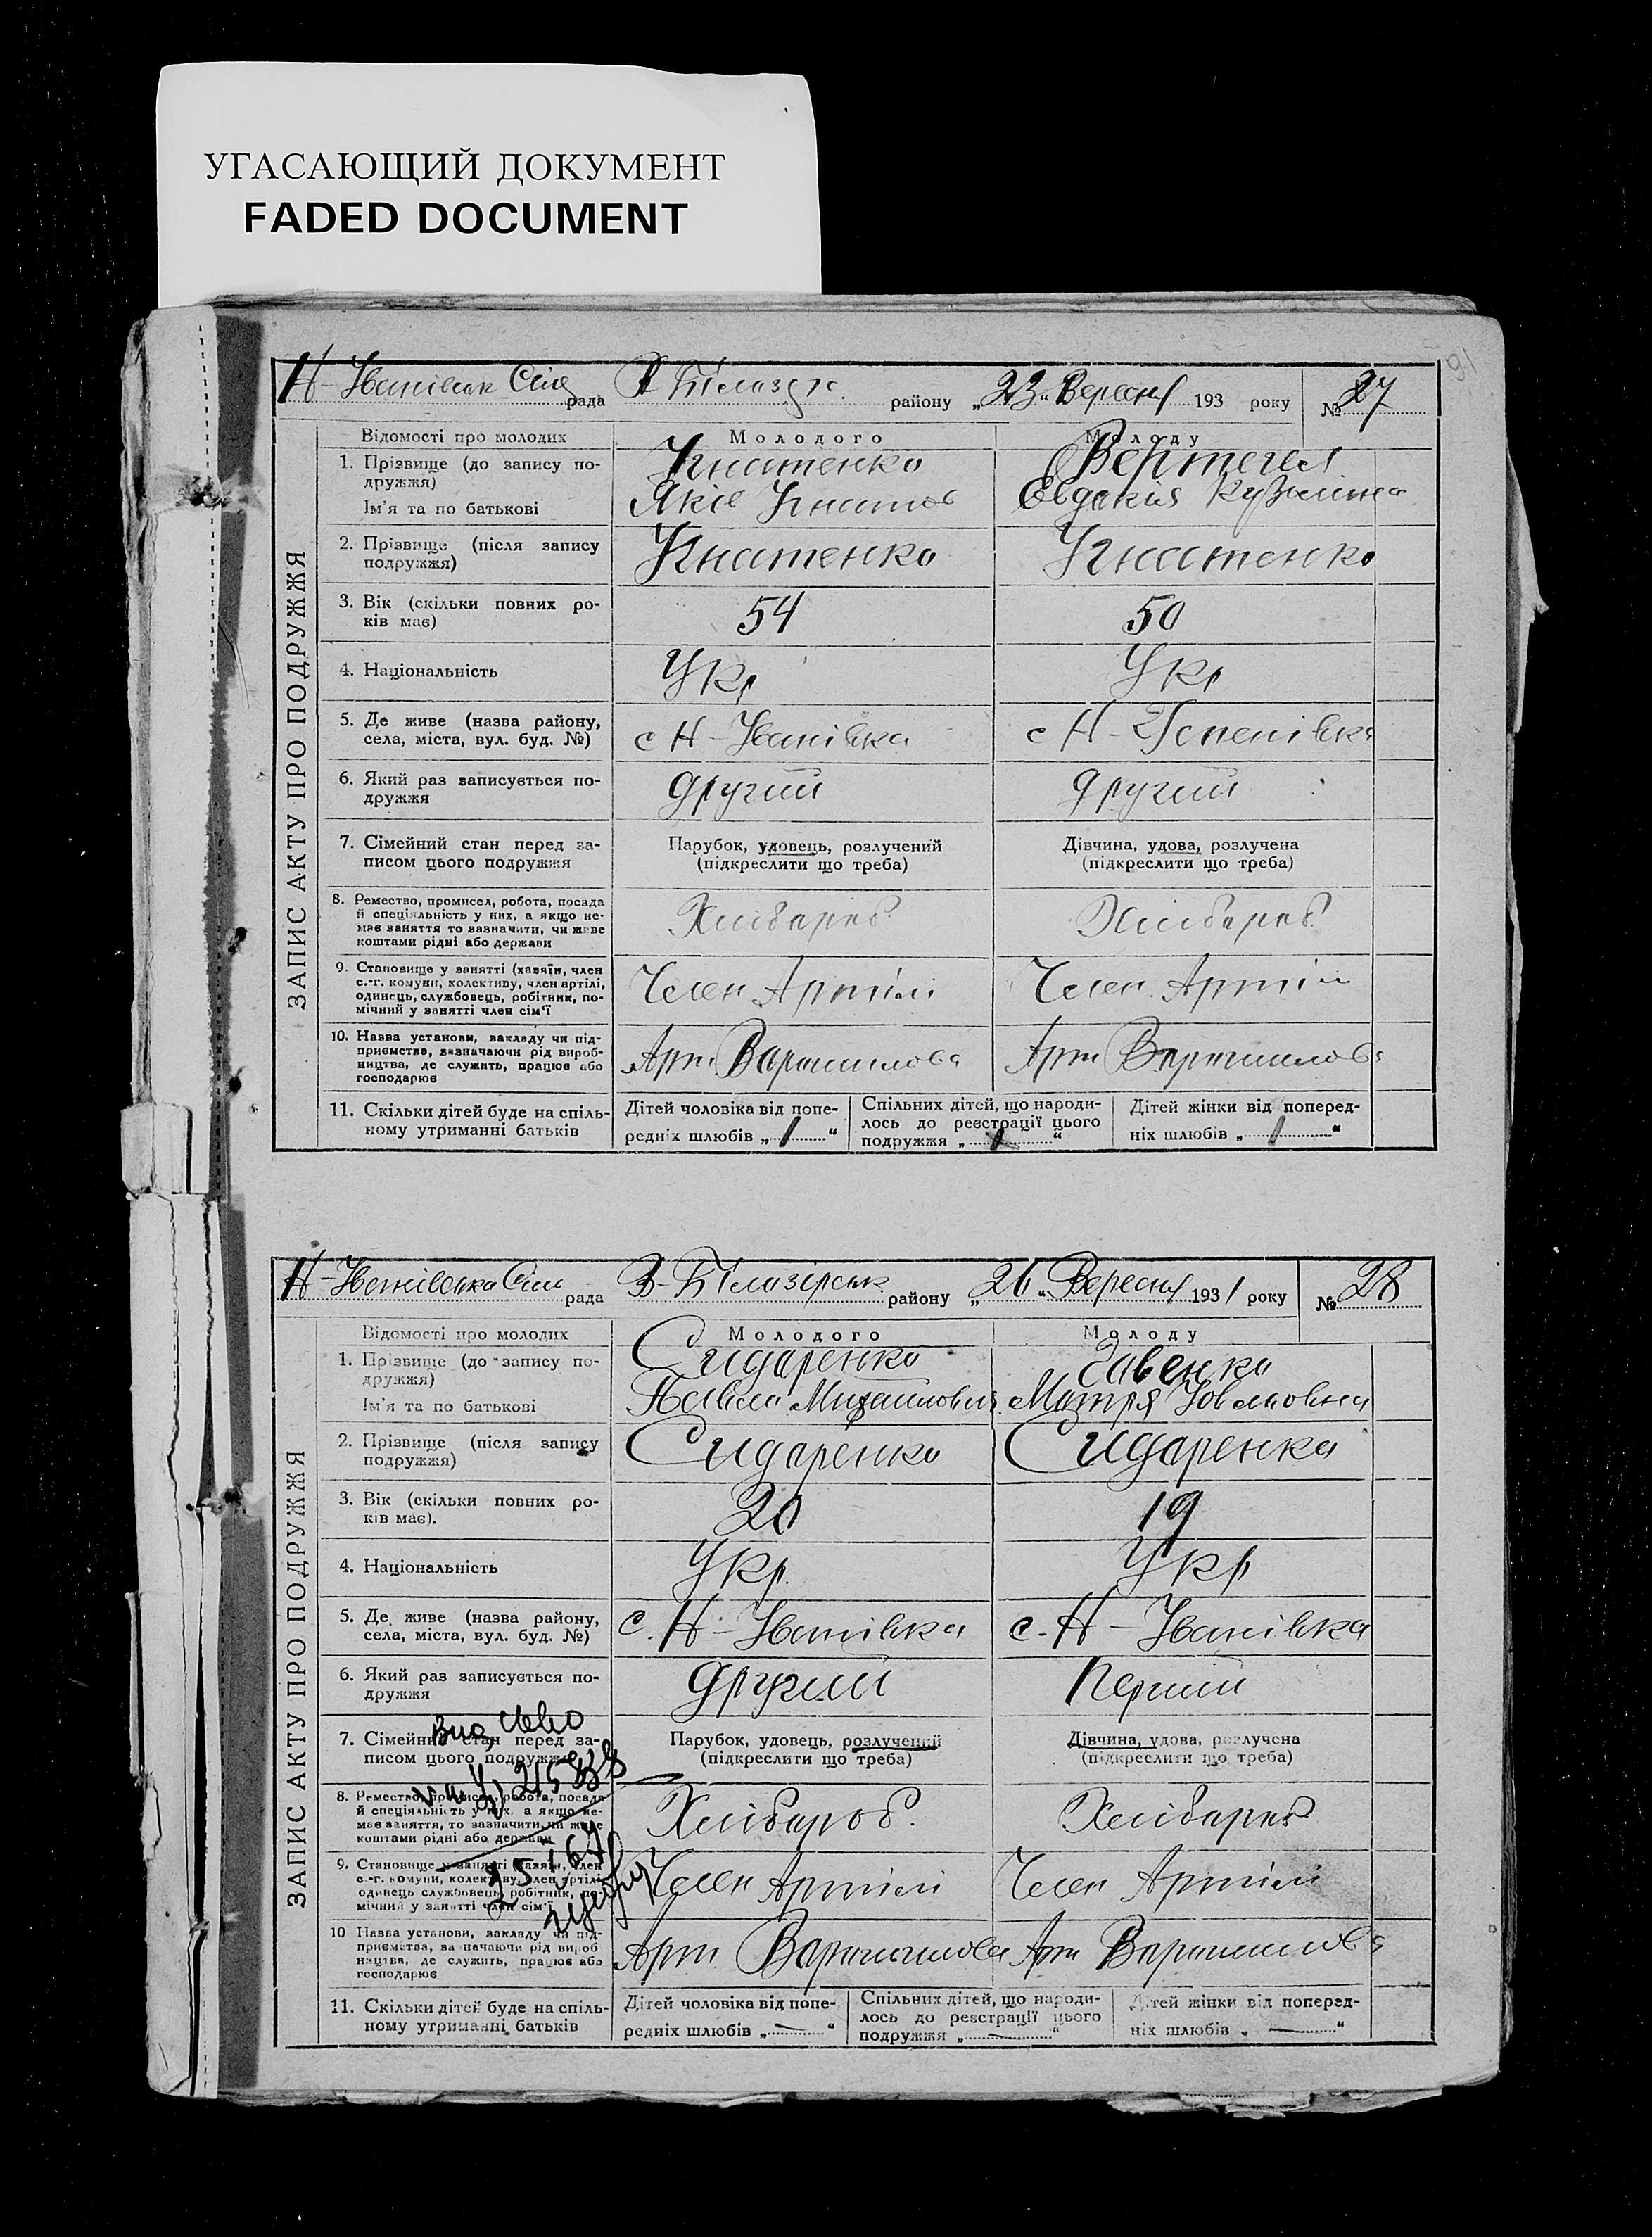 УГАСАЮЩИЙ ДОКУМЕНТ
FADED DOCUMENT
91
Н-Іванівськ Сіл рада В Білазірс району „23" Вересня 193 року № 27
ЗАПИС АКТУ ПРО ПОДРУЖЖЯ
Відомості про молодих Молодого Молоду
1. Прізвище (до запису по- Ігнатенко Вертегел
дружжя)
Ім'я та по батькові Яків Ігнатов Евдокия Кузмівна
2. Прізвище (після запису Ігнатенко Ігнатенко
подружжя)
3. Вік (скільки повних ро- 54 50
ків має)
4. Національність Укр Укр
5. Де живе (назва району, с Н-Іванівка с Н-Успенівка
села, міста, вул. буд. №)
6. Який раз записується по- другий другий
дружжя
7. Сімейний стан перед за- Парубок, удовець, розлучений Дівчина, удова, розлучена
писом цього подружжя (підкреслити що треба) (підкреслити що треба)
8. Ремество, промисел, робота, посада Хлібароб Хлібароб
й спеціяльність у них, а якщо не-
має заняття то зазначити, чи живе
коштами рідні або держави
9. Становище у занятті (хазяїн, член Член Артілі Член Артілі
с.-г. комуни, колективу, член артілі,
одинець, службовець, робітник, по-
мічний у занятті член сім'ї
10. Назва установи, закладу чи під- Арт. Варашилова Арт Варашилова
приємства, зазначаючи рід вироб-
ництва, де служить, працює або
господарює
11. Скільки дітей буде на спіль- Дітей чоловіка від попе- Спільних дітей, що народи- Дітей жінки від поперед-
ному утриманні батьків редніх шлюбів „ / " лось до реєстрації цього ніх шлюбів „ / "
подружжя „ "
Н-Іванівська Сіл рада В-Білазірськ району „26" Вересня 1931 року № 28
ЗАПИС АКТУ ПРО ПОДРУЖЖЯ
Відомості про молодих Молодого Молоду
1. Прізвище (до запису по- Сидаренко
дружжя)
Ім'я та по батькові Павло Михайлович Мотря
2. Прізвище (після запису Сидаренко Сидаренка
подружжя)
3. Вік (скільки повних ро- 20 19
ків має).
4. Національність Укр Укр
5. Де живе (назва району, с. Н-Іванівка с. Н-Іванівка
села, міста, вул. буд. №)
6. Який раз записується по- другий Перший
дружжя
7. Сімейний стан перед за- Парубок, удовець, розлучений Дівчина, удова, розлучена
писом цього подружжя (підкреслити що треба) (підкреслити що треба)
8. Ремество, промисел, робота, посада Хлібароб. Хлібароб
й спеціяльність у них, а якщо не-
має заняття, то зазначити, чи живе
коштами рідні або держави
9. Становище у занятті (хазяїн, член Член Артілі Член Артілі
с.-г. комуни, колективу, член артілі,
одинець службовець, робітник, по-
мічний у занятті член сім'ї
10 Назва установи, закладу чи під- Арт. Варашилова Арт Варашилова
приємства, зазначаючи рід вироб
ництва, де служить, працює або
господарює
11. Скільки дітей буде на спіль- Дітей чоловіка від попе- Спільних дітей, що народи- Дітей жінки від поперед-
ному утриманні батьків редніх шлюбів „ — " лось до реєстрації цього ніх шлюбів „ — "
подружжя „ — "